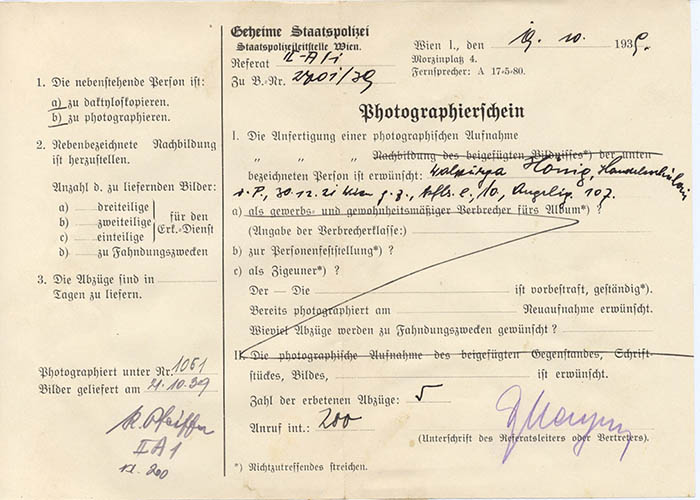 1. Die nebenstehende Person ist:
a) zu daktyloskopieren.
b) zu photographieren.
2. Nebenbezeichnete Nachbildung
ist herzustellen.
Anzahl d. zu liefernden Bilder:
a) dreiteilige
b) zweiteilige
c) einteilige
für den
Erk.-Dienst
d) zu Fahndungszwecken
3. Die Abzüge sind in
Tagen zu liefern.
Photographiert unter Nr. 1051
Bilder geliefert am 21.10.39
K. Pfeiffer
II A 1
Kl. 200
Geheime Staatspolizei
Staatspolizeileitstelle Wien.
Referat II-A/1
Zu B.-Nr. 2701/39
Wien I., den 19. 10. 1939.
Morzinplatz 4.
Fernsprecher: A 17-5-80.
Photographierschein
I. Die Anfertigung einer photographischen Aufnahme
" " " Nachbildung des beigefügten Bildnisses*) der unten
bezeichneten Person ist erwünscht: Walpurga Hönig, Handelsschülerin
30.12.21 Wien g.z., 10., 107.
a) als gewerbs- und gewohnheitsmäßiger Verbrecher fürs Album*) ?
(Angabe der Verbrecherklasse:)
b) zur Personenfeststellung*) ?
c) als Zigeuner*) ?
Der — Die ist vorbestraft, geständig*).
Bereits photographiert am Neuaufnahme erwünscht.
Wieviel Abzüge werden zu Fahndungszwecken gewünscht ?
II. Die photographische Aufnahme des beigefügten Gegenstandes, Schrift-
stückes, Bildes, ist erwünscht.
Zahl der erbetenen Abzüge: 5
Anruf int.: 200
(Unterschrift des Referatsleiters oder Vertreters).
*) Nichtzutreffendes streichen.